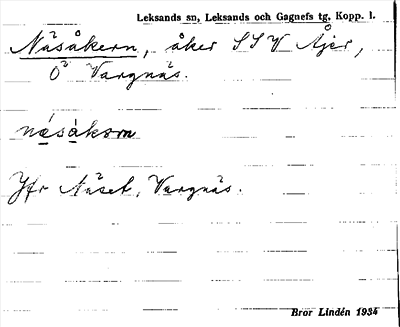 Leksands sn, Leksands och Gagnefs tg, Kopp. l.
Näsåkern, åker SSV Åjer,
Ö Vargnäs.
næsåkəm
Jfr Näset, Vargnäs.
Bror Lindén 1934